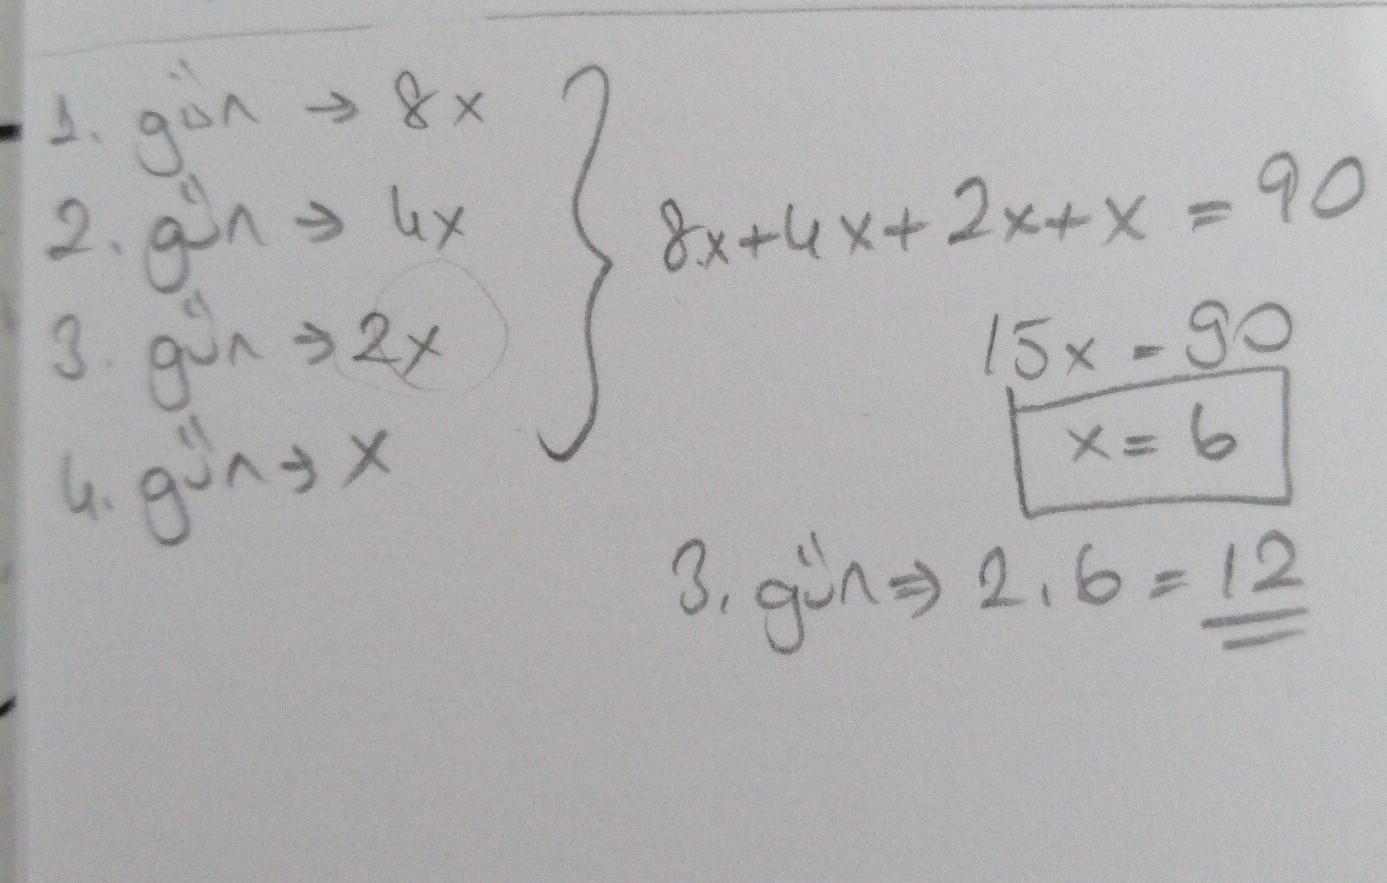 1. gün → 8x
2. gün → 4x
3. gün → 2x
4. gün → x
8x+4x+2x+x = 90
15x = 90
x = 6
3. gün ⇒ 2.6 = 12